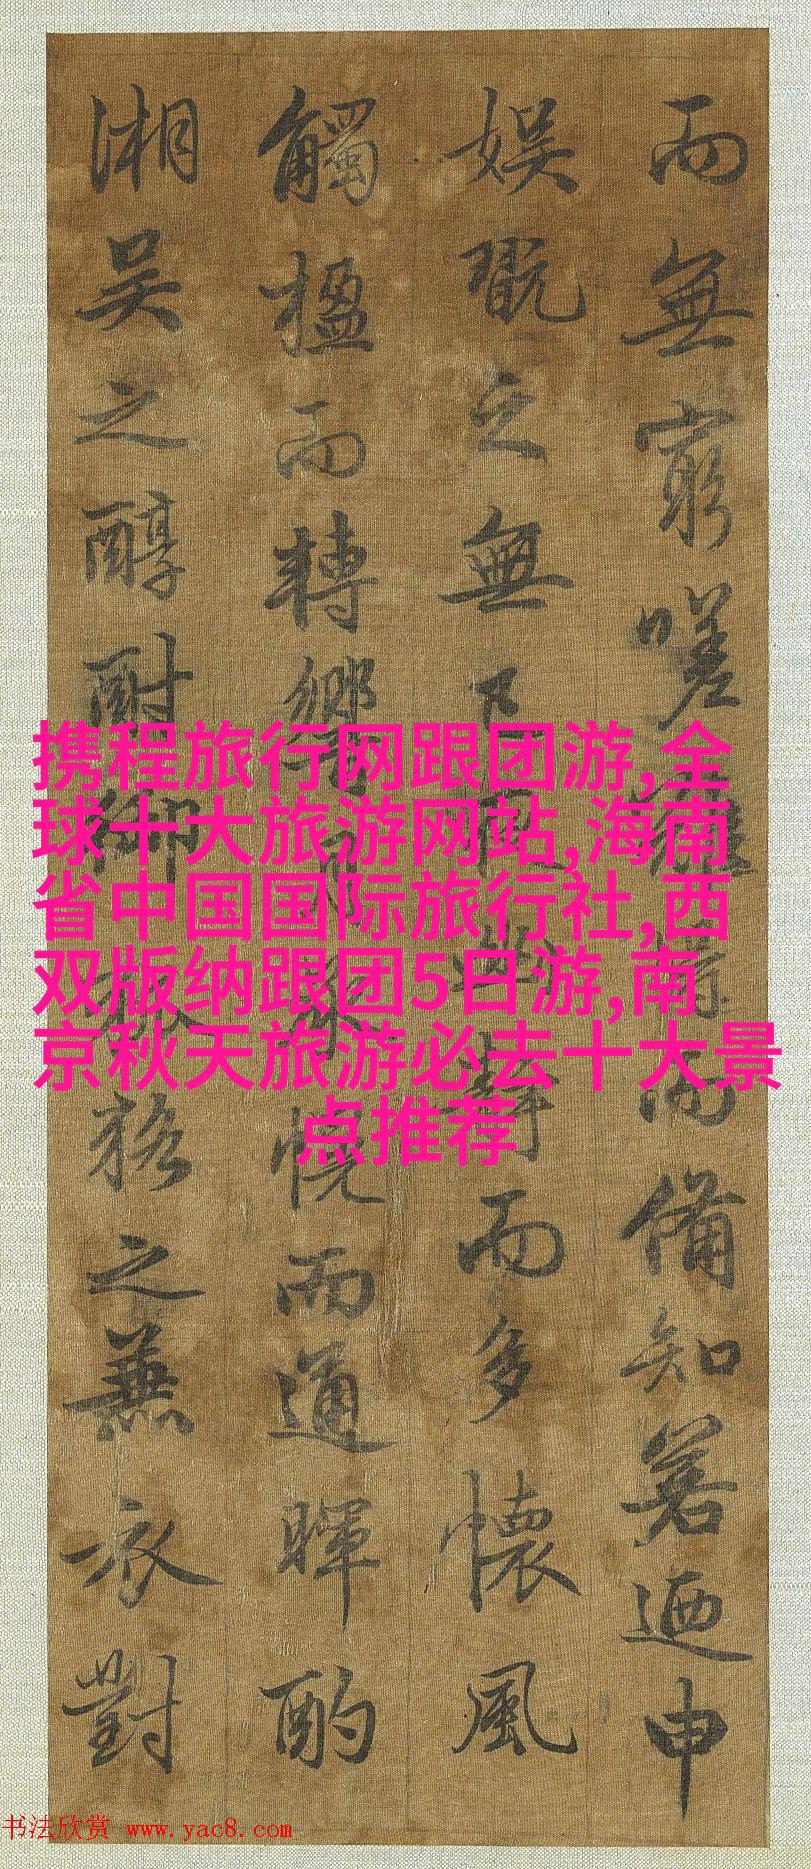 而無窮嗟難得而備知若迺申
娛翫之無已夜幽靜而多懷風
觸楹而轉響月承幌而通暉酌
湘吴之醇酎御狐狢之兼衣對
携程旅行网跟团游,全
球十大旅游网站,海南
省中国国际旅行社,西
双版纳跟团5日游,南
京秋天旅游必去十大景
点推荐
书法欣赏 www.yac8.com